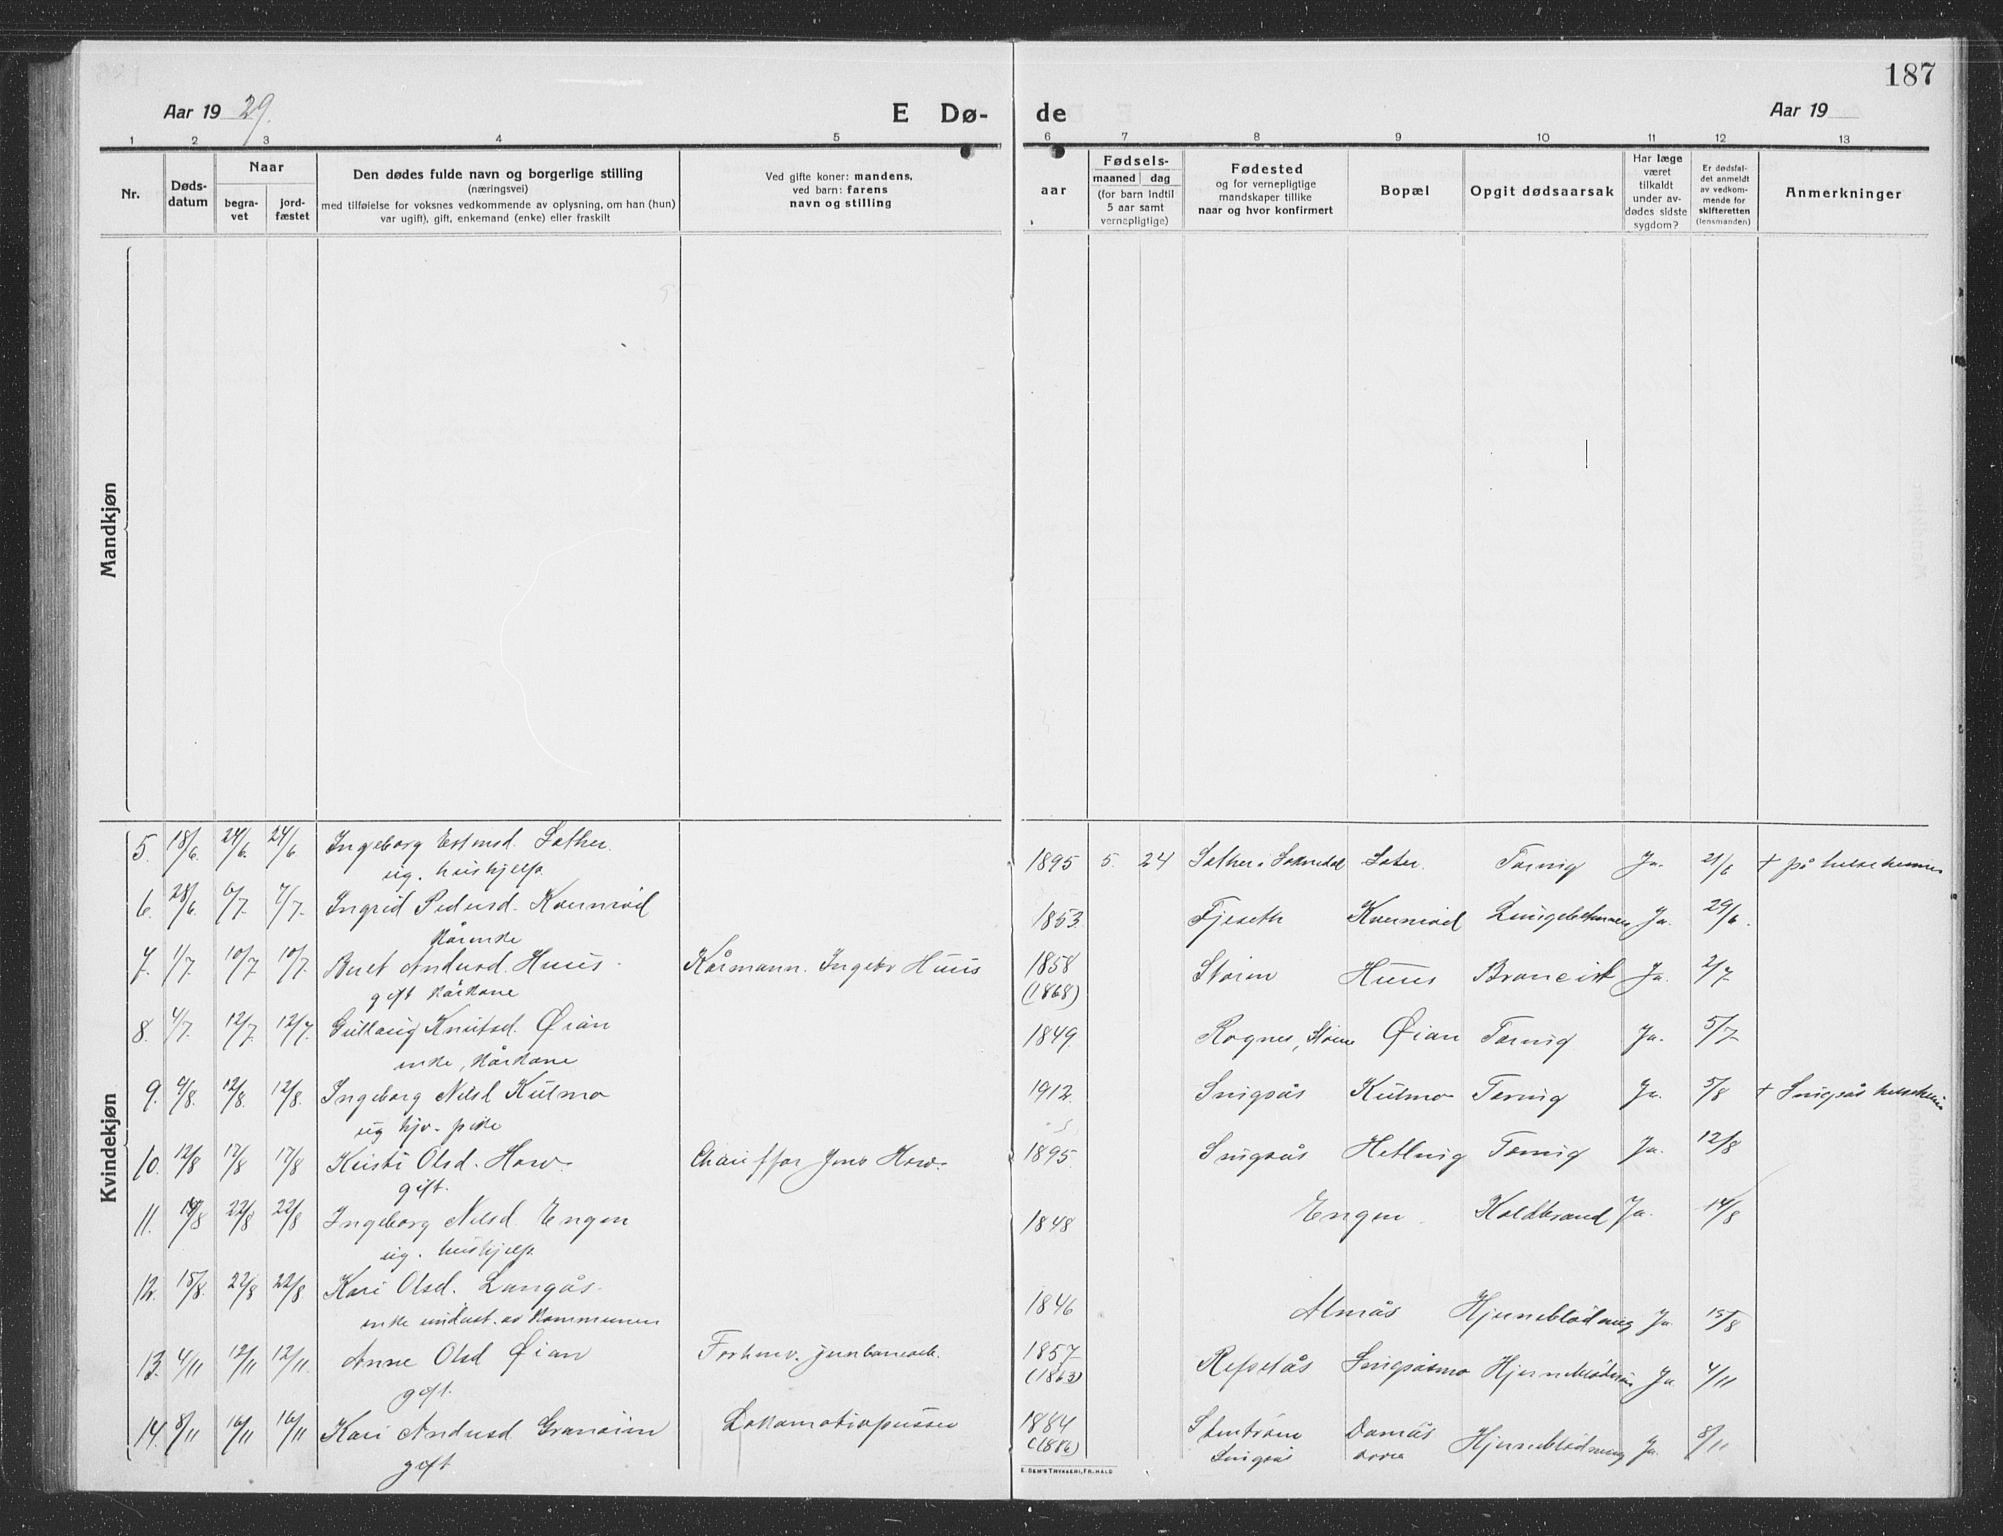 187
Aar 1929.
E Dø-
de
Aar 19
1 2 3 4 5
6 7 8 9 10 11 12 13
Nr.
Døds-
datum
Naar
begra-
vet
jord-
fæstet
Den dødes fulde navn og borgerlige stilling
(næringsvei)
med tilføielse for voksnes vedkommende av oplysning, om han (hun)
var ugift), gift, enkemand (enke) eller fraskilt
Ved gifte koner: mandens,
ved barn: farens
navn og stilling
aar
Fødsels-
maaned dag
(for barn indtil
5 aar samt
vernepligtige)
Fødested
og for vernepligtige
mandskaper tillike
naar og hvor konfirmert
Bopæl
Opgit dødsaarsak
Har læge
været
tilkaldt
under av-
dødes sidste
sygdom?
Er dødsfal-
det anmeldt
av vedkom-
mende for
skifteretten
(lensmanden)
Anmerkninger
Mandkjøn
Kvindekjøn
5. 18/6. 24/6. 24/6 Ingeborg Estensd. Sæther. 1895 5. 24 Sæther i Soknedal Sæter. Tæring Ja. 21/6 + på helseheimen
ug. hushjelp
6. 28/6. 6/7. 7/7. Ingrid Pedersd. Kvernrød 1853 Fjeseth Kvernrød Lungebet Ja. 29/6.
Kårenke
7. 1/7 10/7 10/7. Beret Andersd. Huus. Kårmann. Ingebr Huus 1858 Støren Huus Broncit Ja. 2/7
gift kårkone (1868)
8. 4/7. 12/7. 12/7. Gullaug Knutsd. Øian 1849. Rognes, Støren Øian Tæring Ja. 5/7
enke, kårkone
9. 4/8. 12/8. 12/8. Ingeborg Nilsd Kulmo 1912. Singsås Kulmo Tæring Ja. 5/8 + Singsås helseheim
ug hjv. pike
10. 12/8 17/8 17/8 Kristi Olsd. Hov. Chauffør Jens Hov. 1895. Singsås Hetling Tæring Ja. 12/8
gift.
11. 14/8 22/8 22/8 Ingeborg Nilsd. Engen 1848 Engen Koldbrand Ja. 14/8
ug. hushjelp
12. 15/8. 22/8 22/8 Kari Olsd. Langås. 1846 Almås Hjerneblødning Ja. 15/8
enke underst. av kommunen
13. 4/11 12/11 12/11. Anne Olsd Øian Forhenv. jernbanearb. 1857 Refsetås Singsåsmo Ja. 4/11
gift. (1863)
14. 8/11 16/11 16/11 Kari Andersd Granøien Lokomotivpusser 1884 Damås Hjerneblødning Ja. 8/11
gift (1886) Singsås
E. SEM'S TRYKKERI, FR.HALD